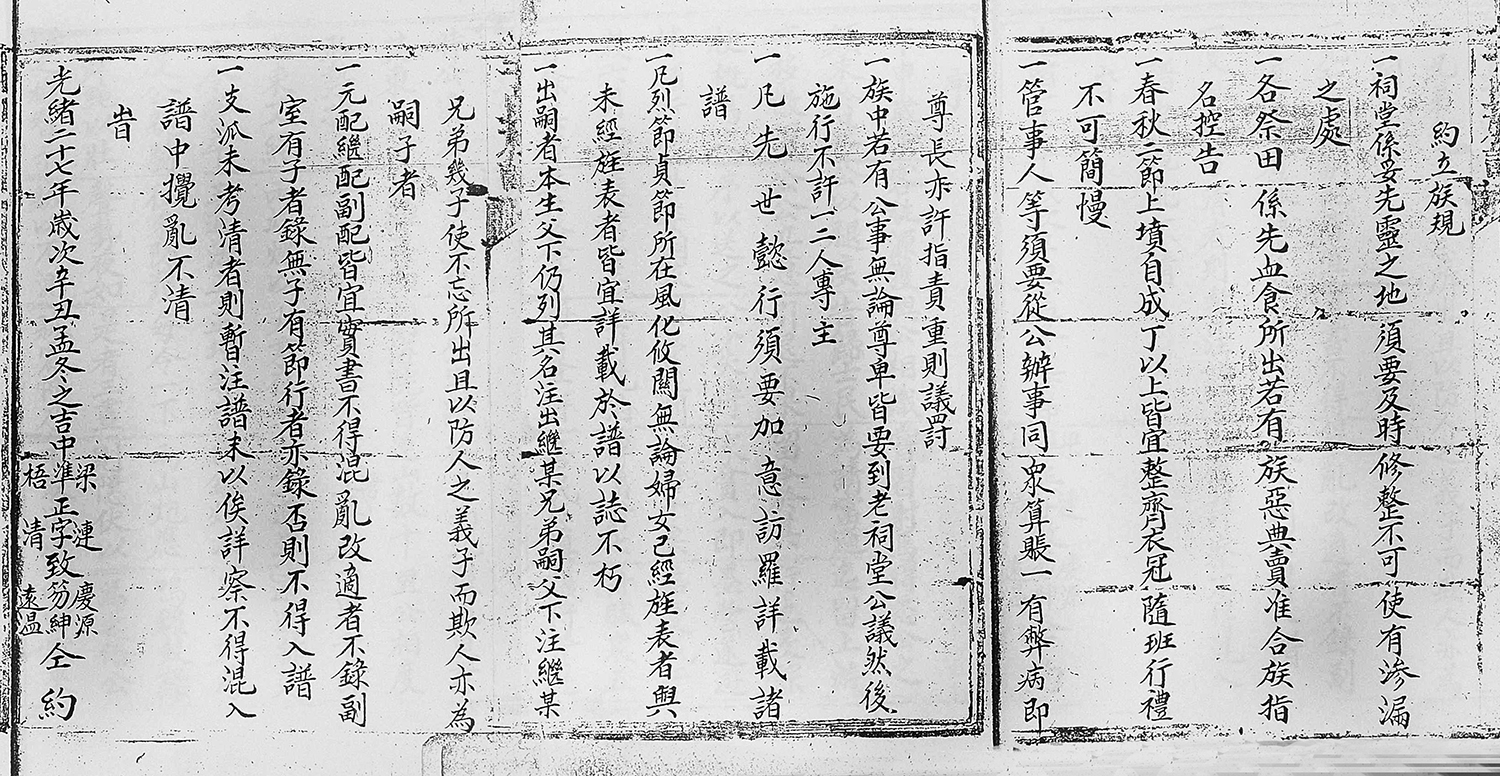 約立族規
一祠堂係妥先靈之地須要及時修整不可使有滲漏
之處
一各祭田係先血食所出若有族惡典賣准合族指
名控告
一春秋二節上墳自成丁以上皆宜整齊衣冠隨班行禮
不可簡慢
一管事人等須要從公辦事同眾算賬一有弊病即
尊長亦許指責重則議罸
一族中若有公事無論尊卑皆要到老祠堂公議然後
施行不許一二人專主
一凡先世懿行須要加意訪羅詳載諸
譜
一凡烈節貞節所在風化攸關無論婦女已經旌表者與
未經旌表者皆宜詳載於譜以誌不朽
一出嗣者本生父下仍列其名注出繼某兄弟嗣父下注繼某
兄弟幾子使不忘所出且以防人之義子而欺人亦為
嗣子者
一元配繼配副配皆宜實書不得混亂改適者不錄副
室有子者錄無子有節行者亦錄否則不得入譜
一支派未考清者則暫注譜末以俟詳察不得混入
譜中攪亂不清
旹
光緒二十七年歲次辛丑孟冬之吉中梁準梧正字漣清致慶源芴紳遠溫仝約